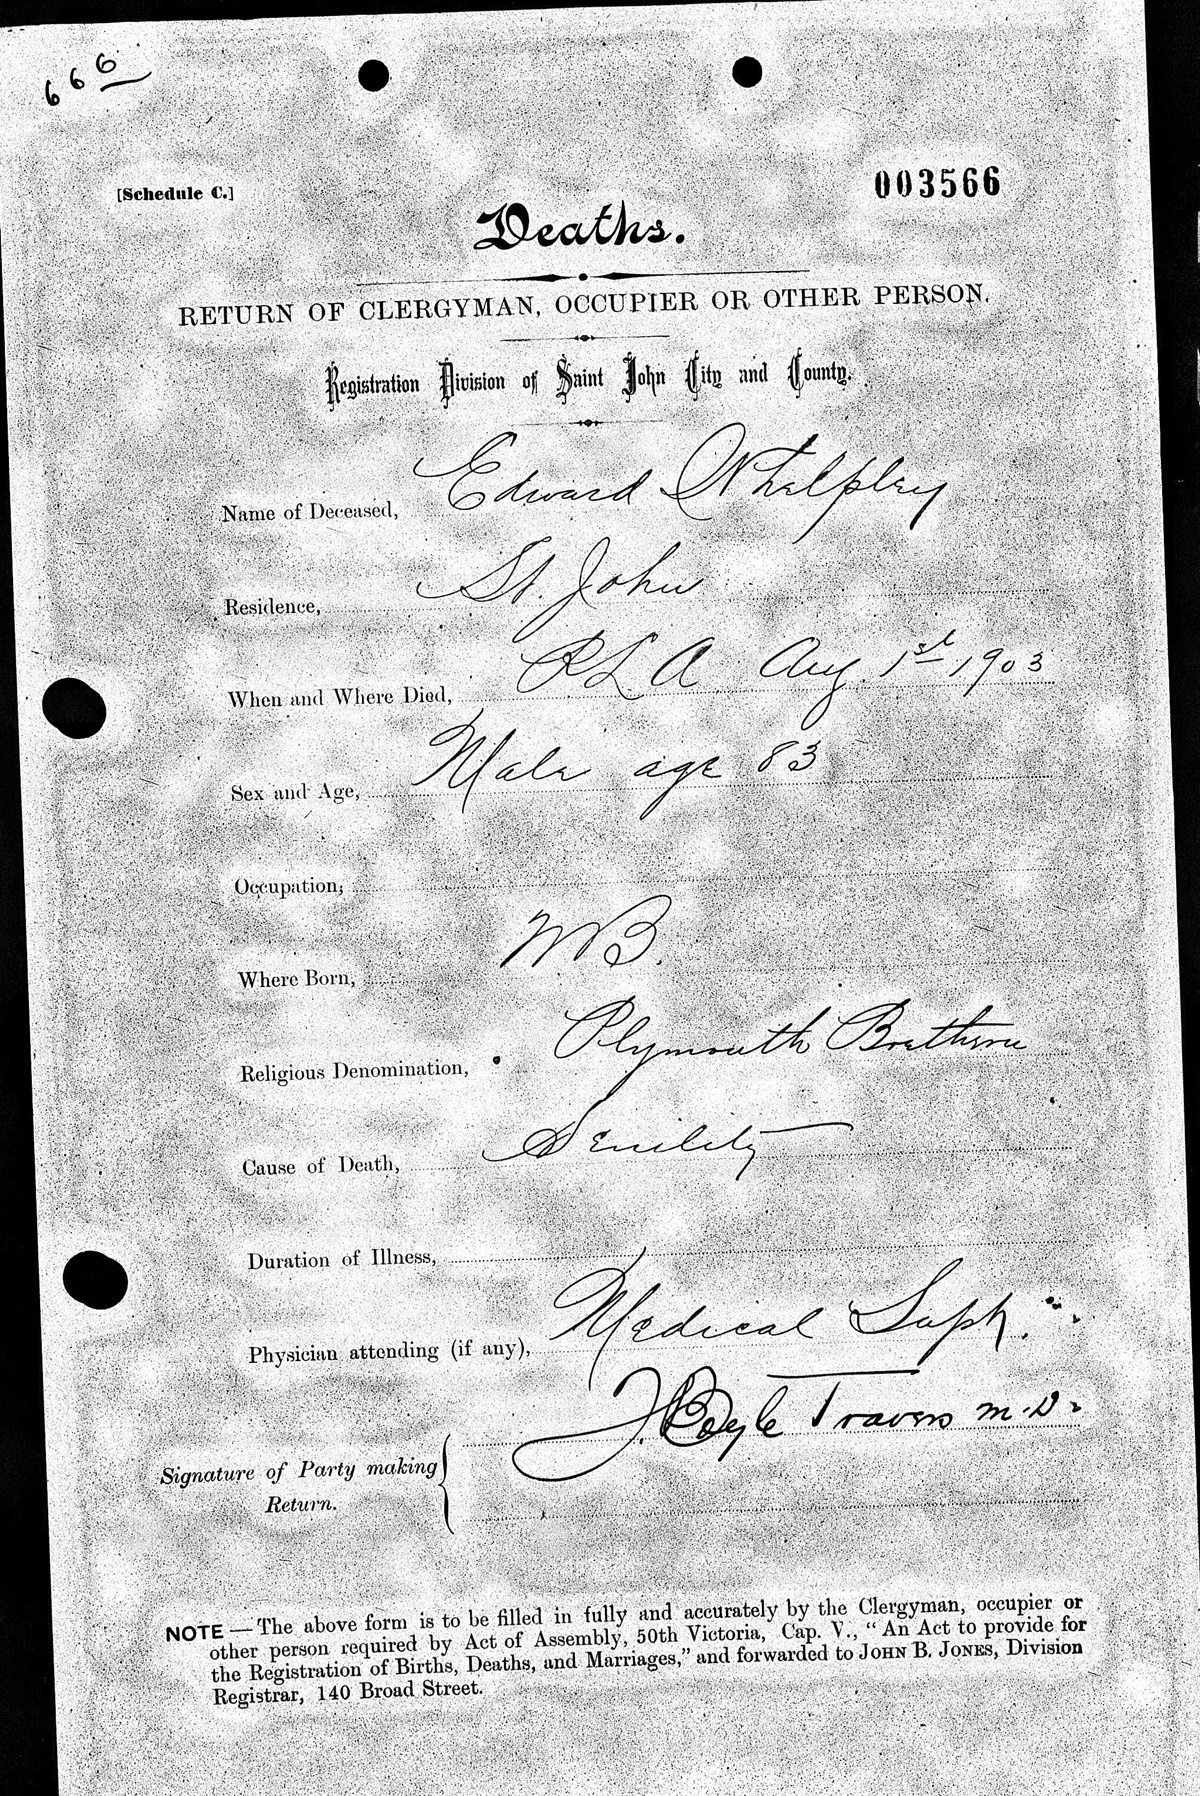 666
[Schedule C.]
003566
Deaths.
RETURN OF CLERGYMAN, OCCUPIER OR OTHER PERSON.
Registration Division of Saint John City and County.
Name of Deceased, Edward Whelpley
Residence, St. John
When and Where Died, P L A Aug. 1st 1903
Sex and Age, Male age 83
Occupation,
Where Born, N B.
Religious Denomination, Plymouth Brethren
Cause of Death, Senility
Duration of Illness,
Physician attending (if any), Medical Supt.
J. Boyle Travers M.D.
Signature of Party making
Return.
NOTE — The above form is to be filled in fully and accurately by the Clergyman, occupier or
other person required by Act of Assembly, 50th Victoria, Cap. V., “ An Act to provide for
the Registration of Births, Deaths, and Marriages,” and forwarded to JOHN B. JONES, Division
Registrar, 140 Broad Street.